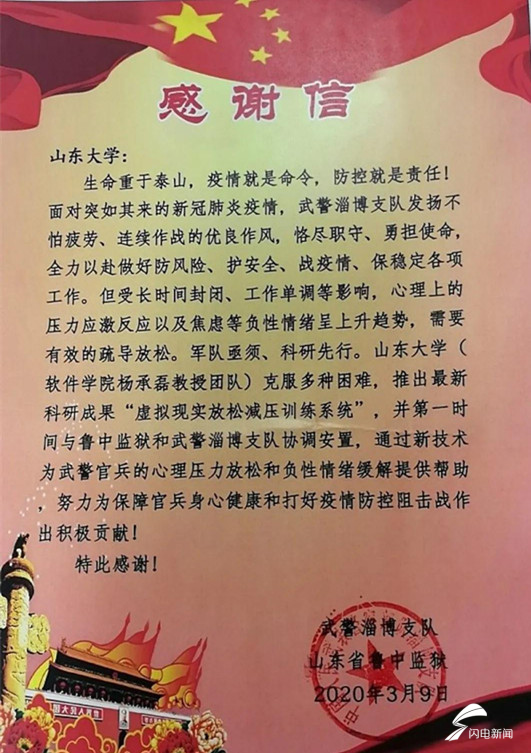 感谢信
山东大学：
生命重于泰山，疫情就是命令，防控就是责任！
面对突如其来的新冠肺炎疫情，武警淄博支队发扬不
怕疲劳、连续作战的优良作风，恪尽职守、勇担使命，
全力以赴做好防风险、护安全、战疫情、保稳定各项
工作。但受长时间封闭、工作单调等影响，心理上的
压力应激反应以及焦虑等负性情绪呈上升趋势，需要
有效的疏导放松。军队亟须、科研先行。山东大学（
软件学院杨承磊教授团队）克服多种困难，推出最新
科研成果“虚拟现实放松减压训练系统”，并第一时
间与鲁中监狱和武警淄博支队协调安置，通过新技术
为武警官兵的心理压力放松和负性情绪缓解提供帮助
，努力为保障官兵身心健康和打好疫情防控阻击战作
出积极贡献！
特此感谢！
武警淄博支队
山东省鲁中监狱
2020年3月9日
闪电新闻